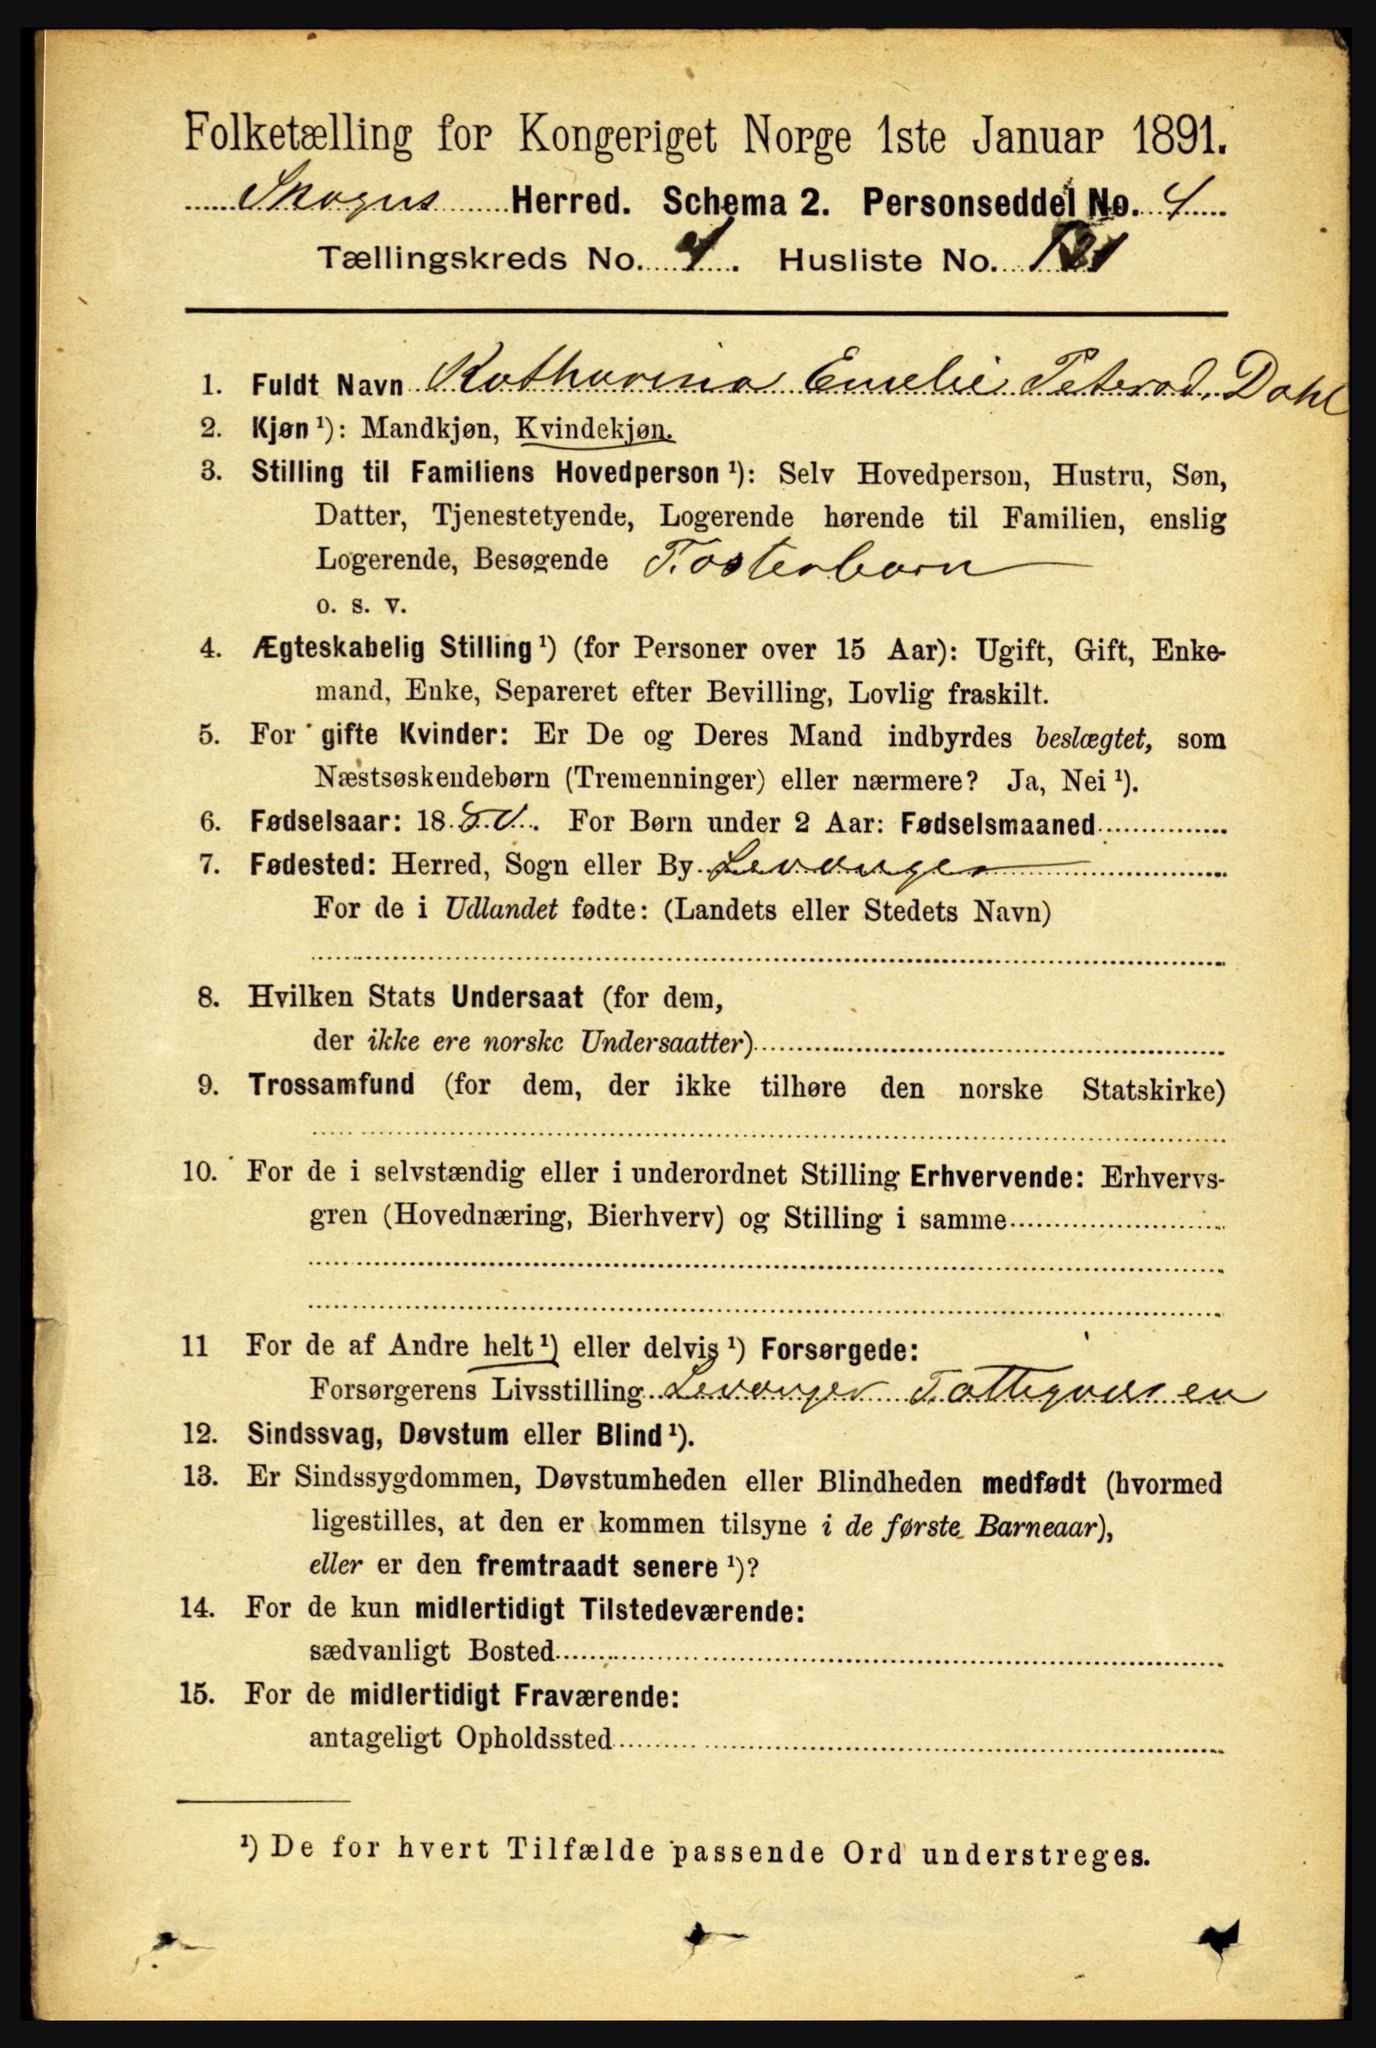 Folketælling for Kongeriget Norge 1ste Januar 1891.
Skogns Herred. Schema 2. Personseddel No. 4
Tællingskreds No. 4. Husliste No.
1. Fuldt Navn Katharina Emelie Petersd. Dahl
2. Kjøn ¹): Mandkjøn, Kvindekjøn.
3. Stilling til Familiens Hovedperson ¹): Selv Hovedperson, Hustru, Søn,
Datter, Tjenestetyende, Logerende hørende til Familien, enslig
Logerende, Besøgende Fosterbarn
o. s. v.
4. Ægteskabelig Stilling ¹) (for Personer over 15 Aar): Ugift, Gift, Enke-
mand, Enke, Separeret efter Bevilling, Lovlig fraskilt.
5. For gifte Kvinder: Er De og Deres Mand indbyrdes beslægtet, som
Næstsøskendebørn (Tremenninger) eller nærmere? Ja, Nei ¹).
6. Fødselsaar: 18 . For Børn under 2 Aar: Fødselsmaaned
7. Fødested: Herred, Sogn eller By Levanger
For de i Udlandet fødte: (Landets eller Stedets Navn)
8. Hvilken Stats Undersaat (for dem,
der ikke ere norske Undersaatter)
9. Trossamfund (for dem, der ikke tilhøre den norske Statskirke)
10. For de i selvstændig eller i underordnet Stilling Erhvervende: Erhvervs-
gren (Hovednæring, Bierhverv) og Stilling i samme
11 For de af Andre helt ¹) eller delvis ¹) Forsørgede:
Forsørgerens Livsstilling Levanger Fattigvæsen
12. Sindssvag, Døvstum eller Blind ¹).
13. Er Sindssygdommen, Døvstumheden eller Blindheden medfødt (hvormed
ligestilles, at den er kommen tilsyne i de første Barneaar),
eller er den fremtraadt senere ¹)?
14. For de kun midlertidigt Tilstedeværende:
sædvanligt Bosted
15. For de midlertidigt Fraværende:
antageligt Opholdssted
¹) De for hvert Tilfælde passende Ord understreges.